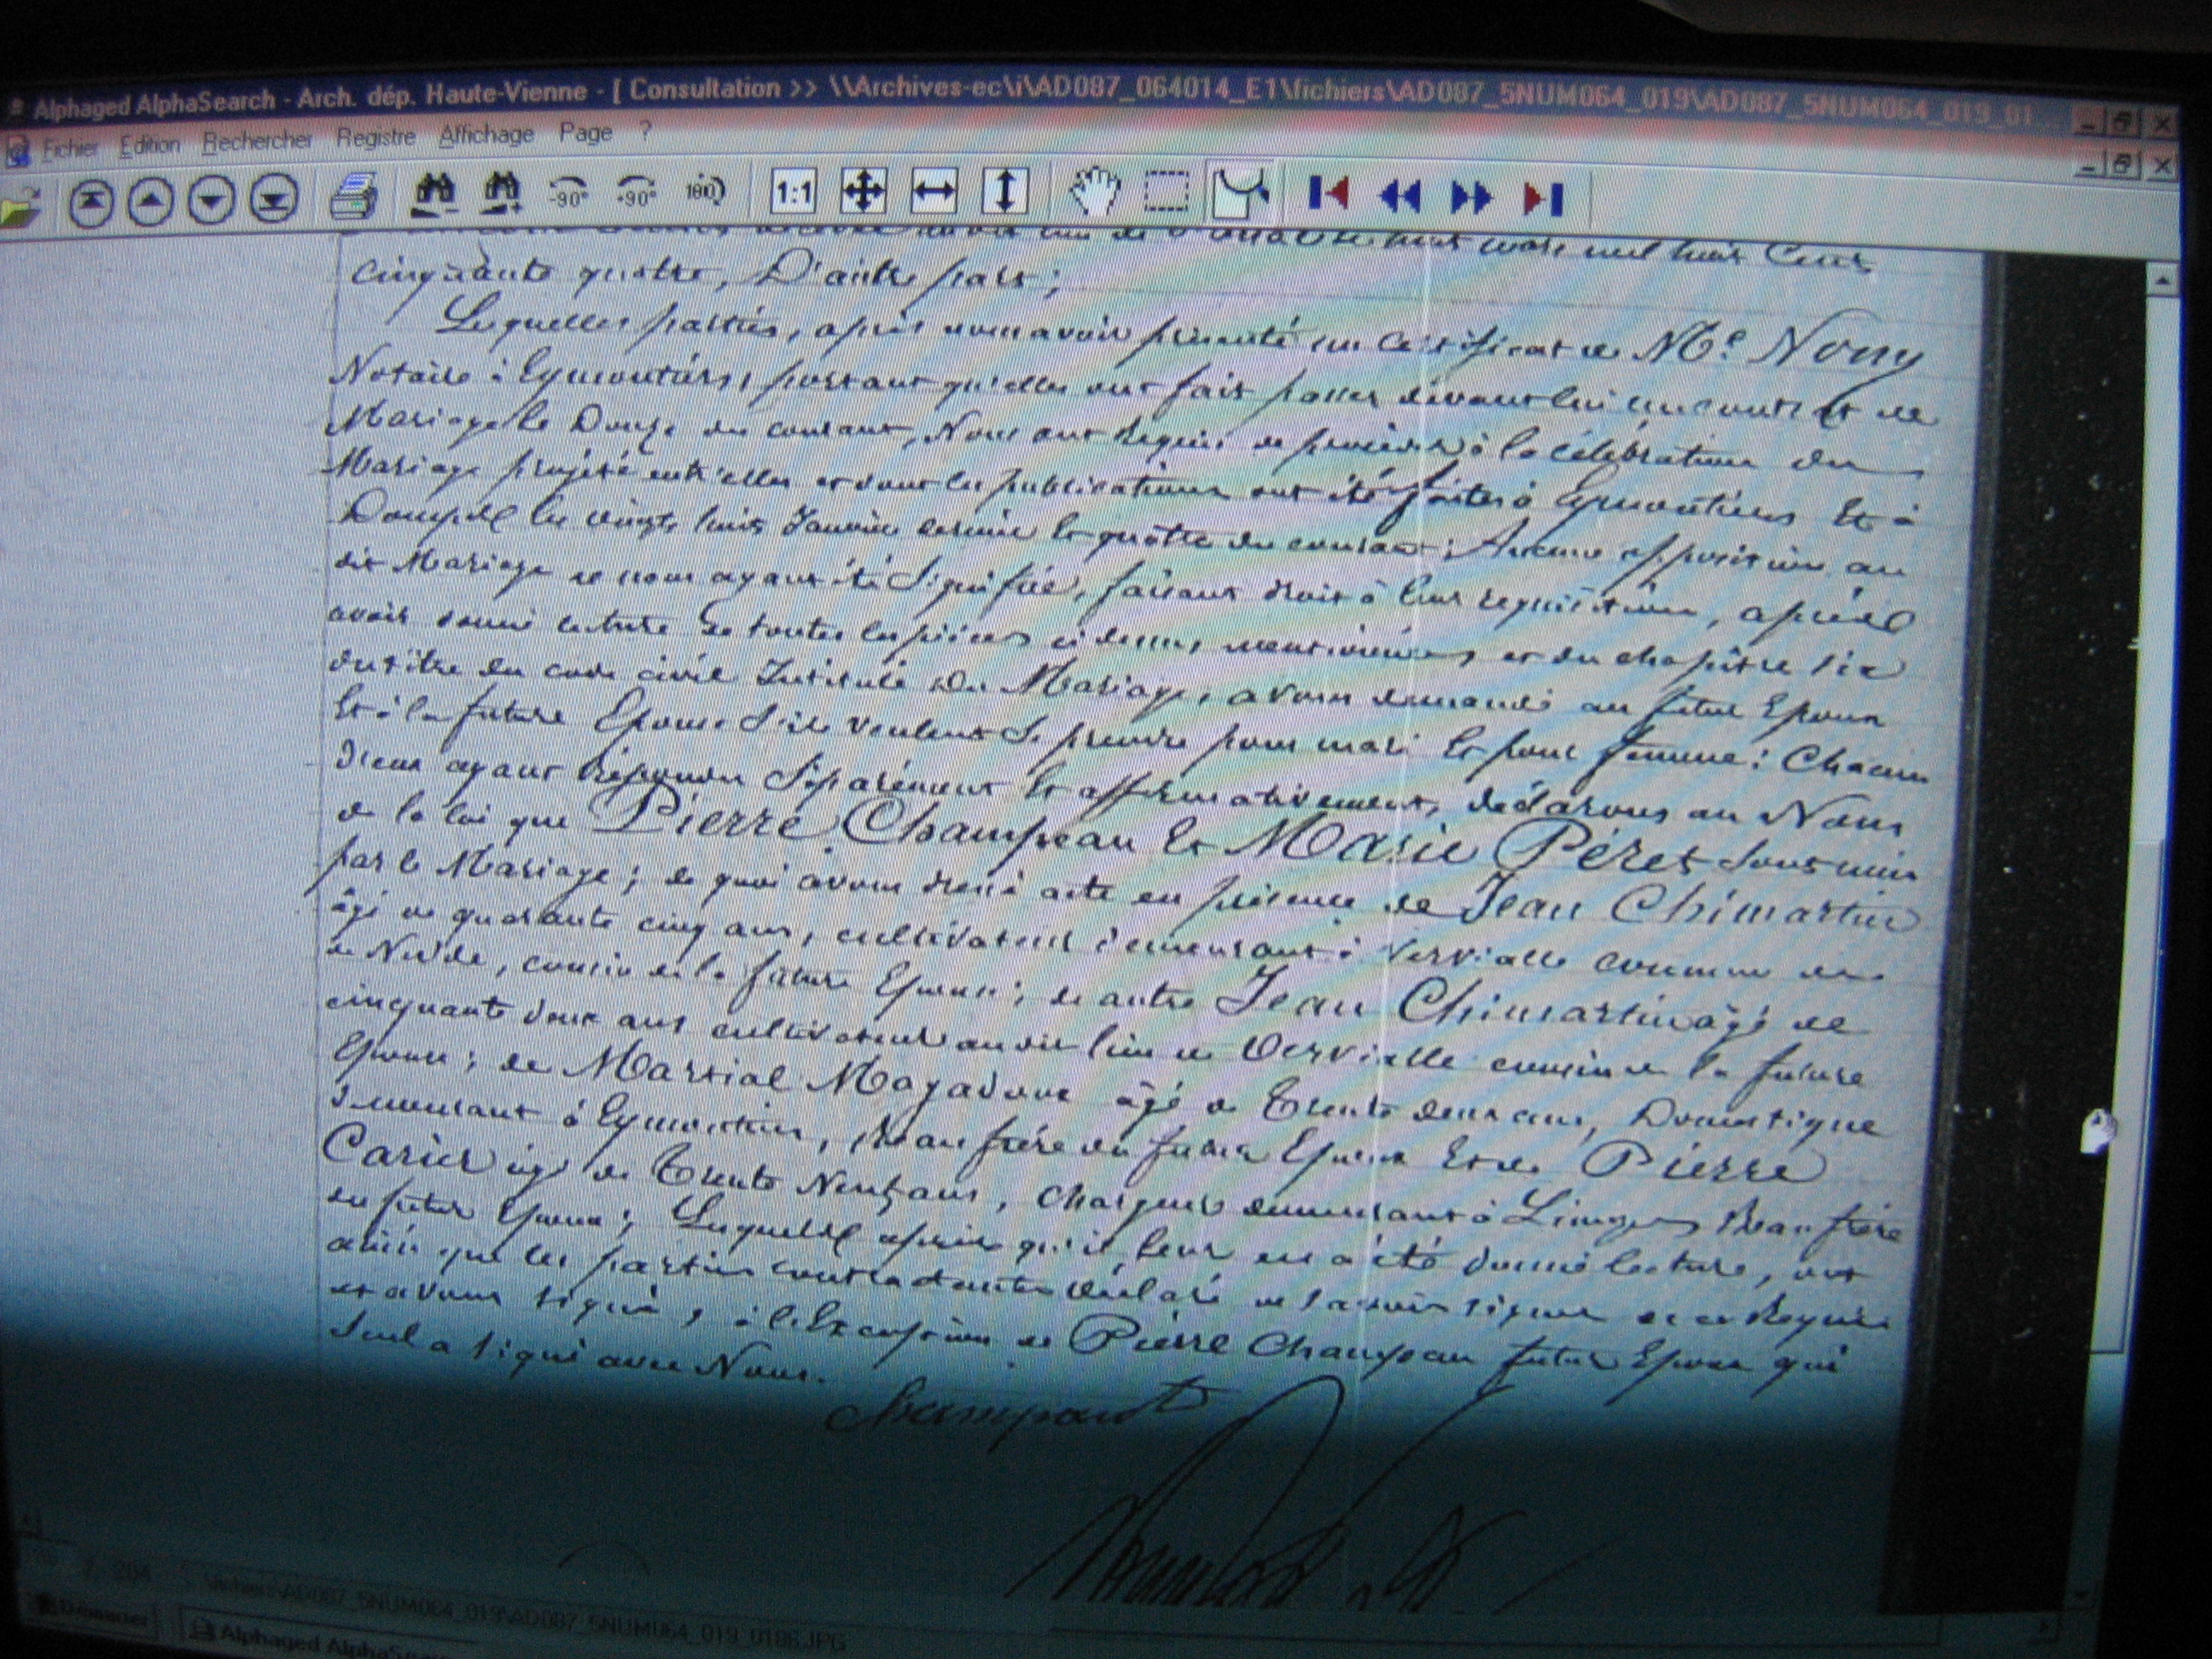 Alphaged AlphaSearch - Arch. dép. Haute-Vienne - [ Consultation >> \\Archives-ec\i\AD087_064014_E1\fichiers\AD087_5NUM064_019\AD087_5NUM064_019_01
Fichier Edition Rechercher Registre Affichage Page ?
-90° +90° 180 1:1
mil huit Cent
cinquante quatre, D'autre part;
Lesquelles parties, après nous avoir présenté un certificat de Me. Nony
Notaire à Eymoutiers, portant qu'elles ont fait passer devant lui un contrat de
Mariage le Douze du courant, Nous ont requis de procéder à la célébration du
Mariage projeté entr'elles et dont les publications ont été faites à Eymoutiers Et à
Domps les vingt huit Janvier dernier Et quatre du courant; Aucune opposition au
dit Mariage ne nous ayant été Signifiée, faisant droit à leur requisition, après
avoir donné lecture de toutes les pièces ci dessus mentionnées et du chapitre six
du titre du code civil Intitulé du Mariage, avons demandé au futur Epoux
Et à la future Epouse S'ils veulent Se prendre pour mari Et pour femme: Chacun
d'eux ayant répondu Séparément Et affirmativement, déclarons au Nom
de la loi que Pierre Champeau Et Marie Péret Sont unis
par le Mariage; de quoi avons dressé acte en présence de Jean Chimartin
âgé de quarante cinq ans, cultivateur demeurant à Vervialle commune de
de Nedde, cousin de la future Epouse; de autre Jean Chimartin âgé de
cinquante deux ans cultivateur au dit lieu de Vervialle cousin de la future
Epouse; de Martial Magadoux âgé de Trente deux ans, Domestique
demeurant à Eymoutiers, Beau frère du futur Epoux Et de Pierre
Carier âgé de Trente Neuf ans, demeurant à Limoges Beau frère
du futur Epoux; Lesquels après qu'il leur en a été donné lecture, ont
ainsi que les parties contractantes déclaré ne savoir signer de ce Requis
et avons signé, à l'Exception de Pierre Champeau futur Epoux qui
Seul a signé avec Nous.
Champaud
204 \fichiers\AD087_5NUM064_019\AD087_5NUM064_019_0186.JPG
Démarrer Alphaged AlphaSear